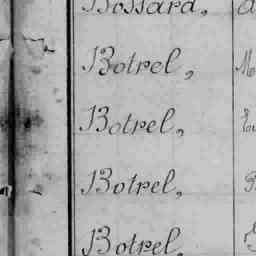 Bossard,
Botrel,
Botrel,
Botrel,
Botrel,